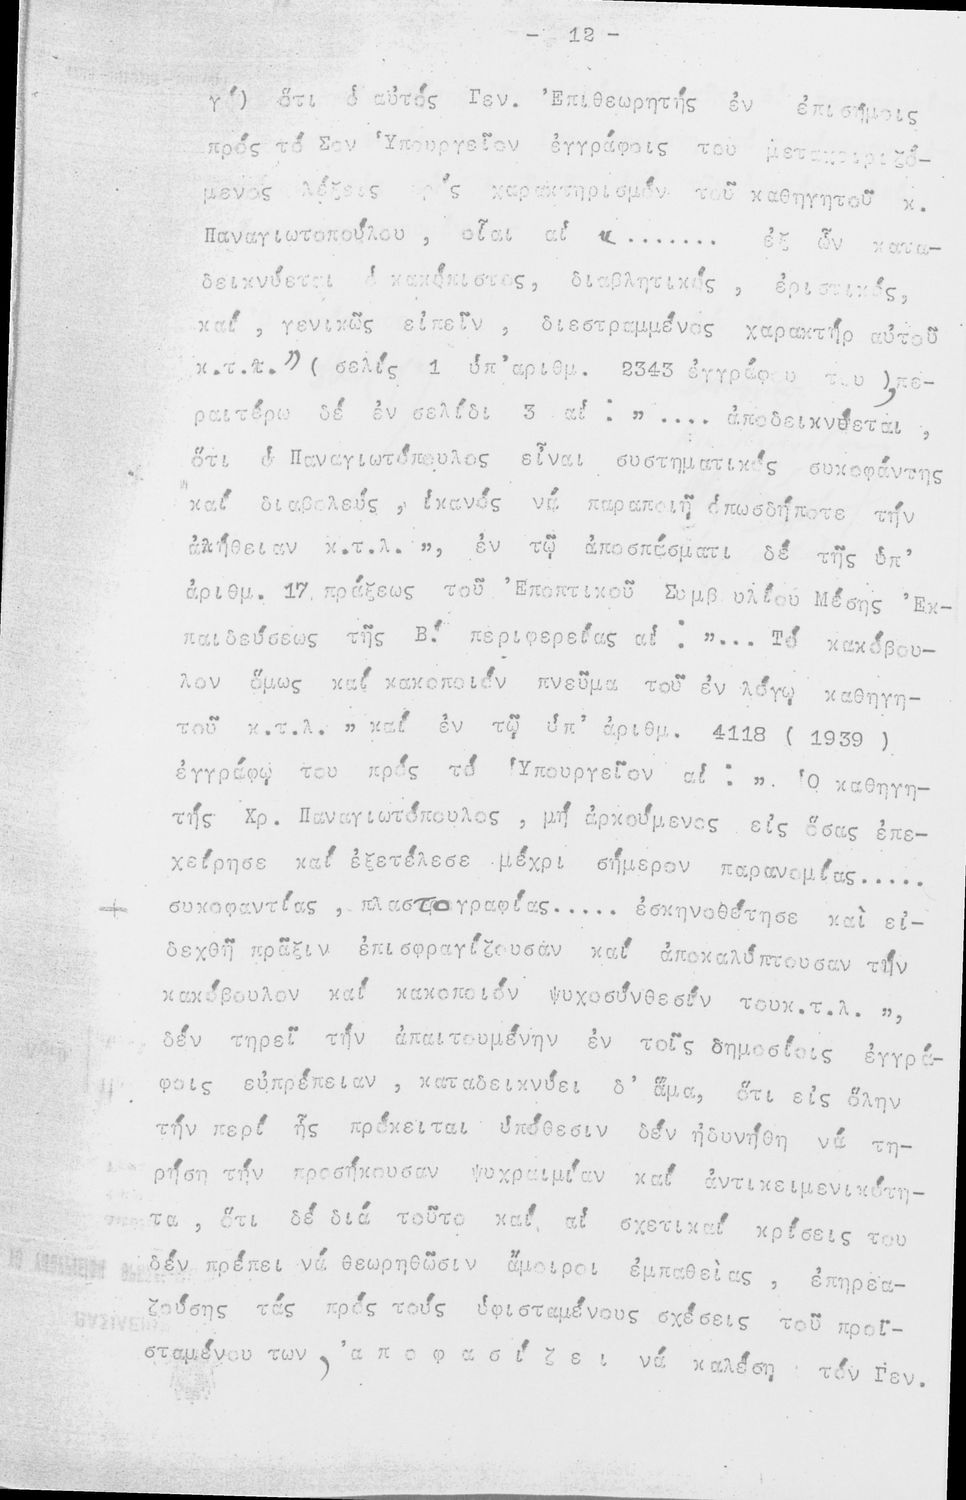 - 12 -
γ΄) ὅτι ὁ αὐτός Γεν. Ἐπιθεωρητής ἐν ἐπισήμοις
πρός τό Σον Ὑπουργεῖον ἐγγράφοις του μεταχειριζό-
μενος λέξεις πρός χαρακτηρισμόν τοῦ καθηγητοῦ κ.
Παναγιωτοπούλου , οἷαι αἱ « ....... ἐξ ὧν κατα-
δεικνύεται ὁ κακόπιστος, διαβλητικός , ἐριστικός,
καί , γενικῶς εἰπεῖν , διεστραμμένος χαρακτήρ αὐτοῦ
κ.τ.λ.» ( σελίς 1 ὑπ'αριθμ. 2343 ἐγγράφου του ),πε-
ραιτέρω δέ ἐν σελίδι 3 αἱ : " .... ἀποδεικνύεται ,
ὅτι ὁ Παναγιωτόπουλος εἶναι συστηματικός συκοφάντης
καί διαβολεύς , ἱκανός νά παραποιῇ ὁπωσδήποτε τήν
ἀλήθειαν κ.τ.λ. ", ἐν τῷ ἀποσπάσματι δέ τῆς ὑπ'
ἀριθμ. 17 πράξεως τοῦ Ἐποπτικοῦ Συμβ υλίου Μέσης Ἐκ-
παιδεύσεως τῆς Β΄ περιφερείας αἱ : "... Τό κακόβου-
λον ὅμως καί κακοποιόν πνεῦμα τοῦ ἐν λόγῳ καθηγη-
τοῦ κ.τ.λ. " καί ἐν τῷ ὑπ' ἀριθμ. 4118 ( 1939 )
ἐγγράφῳ του πρός τό Ὑπουργεῖον αἱ : ". Ὁ καθηγη-
τής Χρ. Παναγιωτόπουλος , μή ἀρκούμενος εἰς ὅσας ἐπε-
χείρησε καί ἐξετέλεσε μέχρι σήμερον παρανομίας.....
συκοφαντίας , πλαστογραφίας..... ἐσκηνοθέτησε καὶ εἰ-
δεχθῆ πρᾶξιν ἐπισφραγίζουσαν καί ἀποκαλύπτουσαν τήν
κακόβουλον καί κακοποιόν ψυχοσύνθεσίν τουκ.τ.λ. ",
δέν τηρεῖ τήν ἀπαιτουμένην ἐν τοῖς δημοσίοις ἐγγρά-
φοις εὐπρέπειαν , καταδεικνύει δ' ἅμα, ὅτι εἰς ὅλην
τήν περί ἧς πρόκειται ὑπόθεσιν δέν ἠδυνήθη νά τη-
ρήση τήν προσήκουσαν ψυχραιμίαν καί ἀντικειμενικότη-
τα , ὅτι δέ διά τοῦτο καί αἱ σχετικαί κρίσεις του
δέν πρέπει νά θεωρηθῶσιν ἄμοιροι ἐμπαθείας , ἐπηρεα-
ζούσης τάς πρός τούς ὑφισταμένους σχέσεις τοῦ προϊ-
σταμένου των , ἀ π ο φ α σ ί ζ ε ι νά καλέση τόν Γεν.